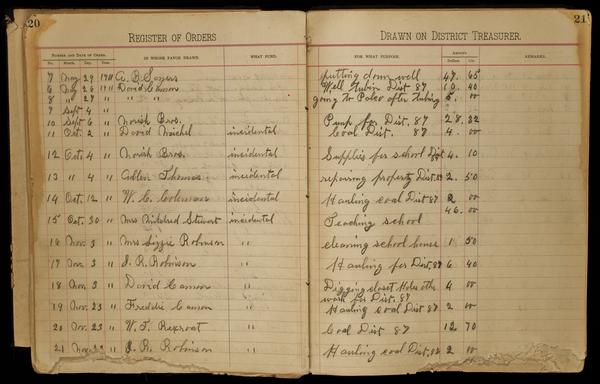 20
REGISTER OF ORDERS
NUMBER AND DATE OF ORDER. IN WHOSE FAVOR DRAWN. WHAT FUND.
No. Month. Day. Year.
7 29 1911 A. B.
6 26 1911 David Cannon
8 " 27 " " "
9 Sept 4 11
10 Sept 6 " Norish Bros.
11 Oct. 2 " David Michel incidental
12 Oct. 4 " Norish Bros. incidental
13 " 4 " Thomas incidental
14 Oct. 12 " W. C. Coleman incidental
15 Oct. 30 " Mrs Stewart incidental
16 Nov. 3 " Mrs Lizzie Robinson "
17 Nov. 3 " J. R. Robinson "
18 Nov. 3 " David Cannon "
19 Nov. 23 " Freddie Cannon "
20 Nov. 23 " W. T. Rexroat "
21 Nov. 23 " J. R. Robinson "
21
DRAWN ON DISTRICT TREASURER.
FOR WHAT PURPOSE. AMOUNT REMARKS.
Dollars Cts.
putting down well 47. 65
Well tubin Dist 87 10. 40
going to after tubing 5. 00
Pump for Dist. 87 28. 32
Coal Dist. 87 4. 00
Supplies for school Dist 4. 10
repairing property Dist. 87 2. 50
Hauling coal Dist 87 2 00
Teaching school 46. 00
cleaning school house 1 50
Hauling for Dist. 87 6 40
Digging closet Holes other 4 00
work for Dist. 87
Hauling coal Dist 87 2 00
Coal Dist 87 12 70
Hauling coal Dist. 87 2 00